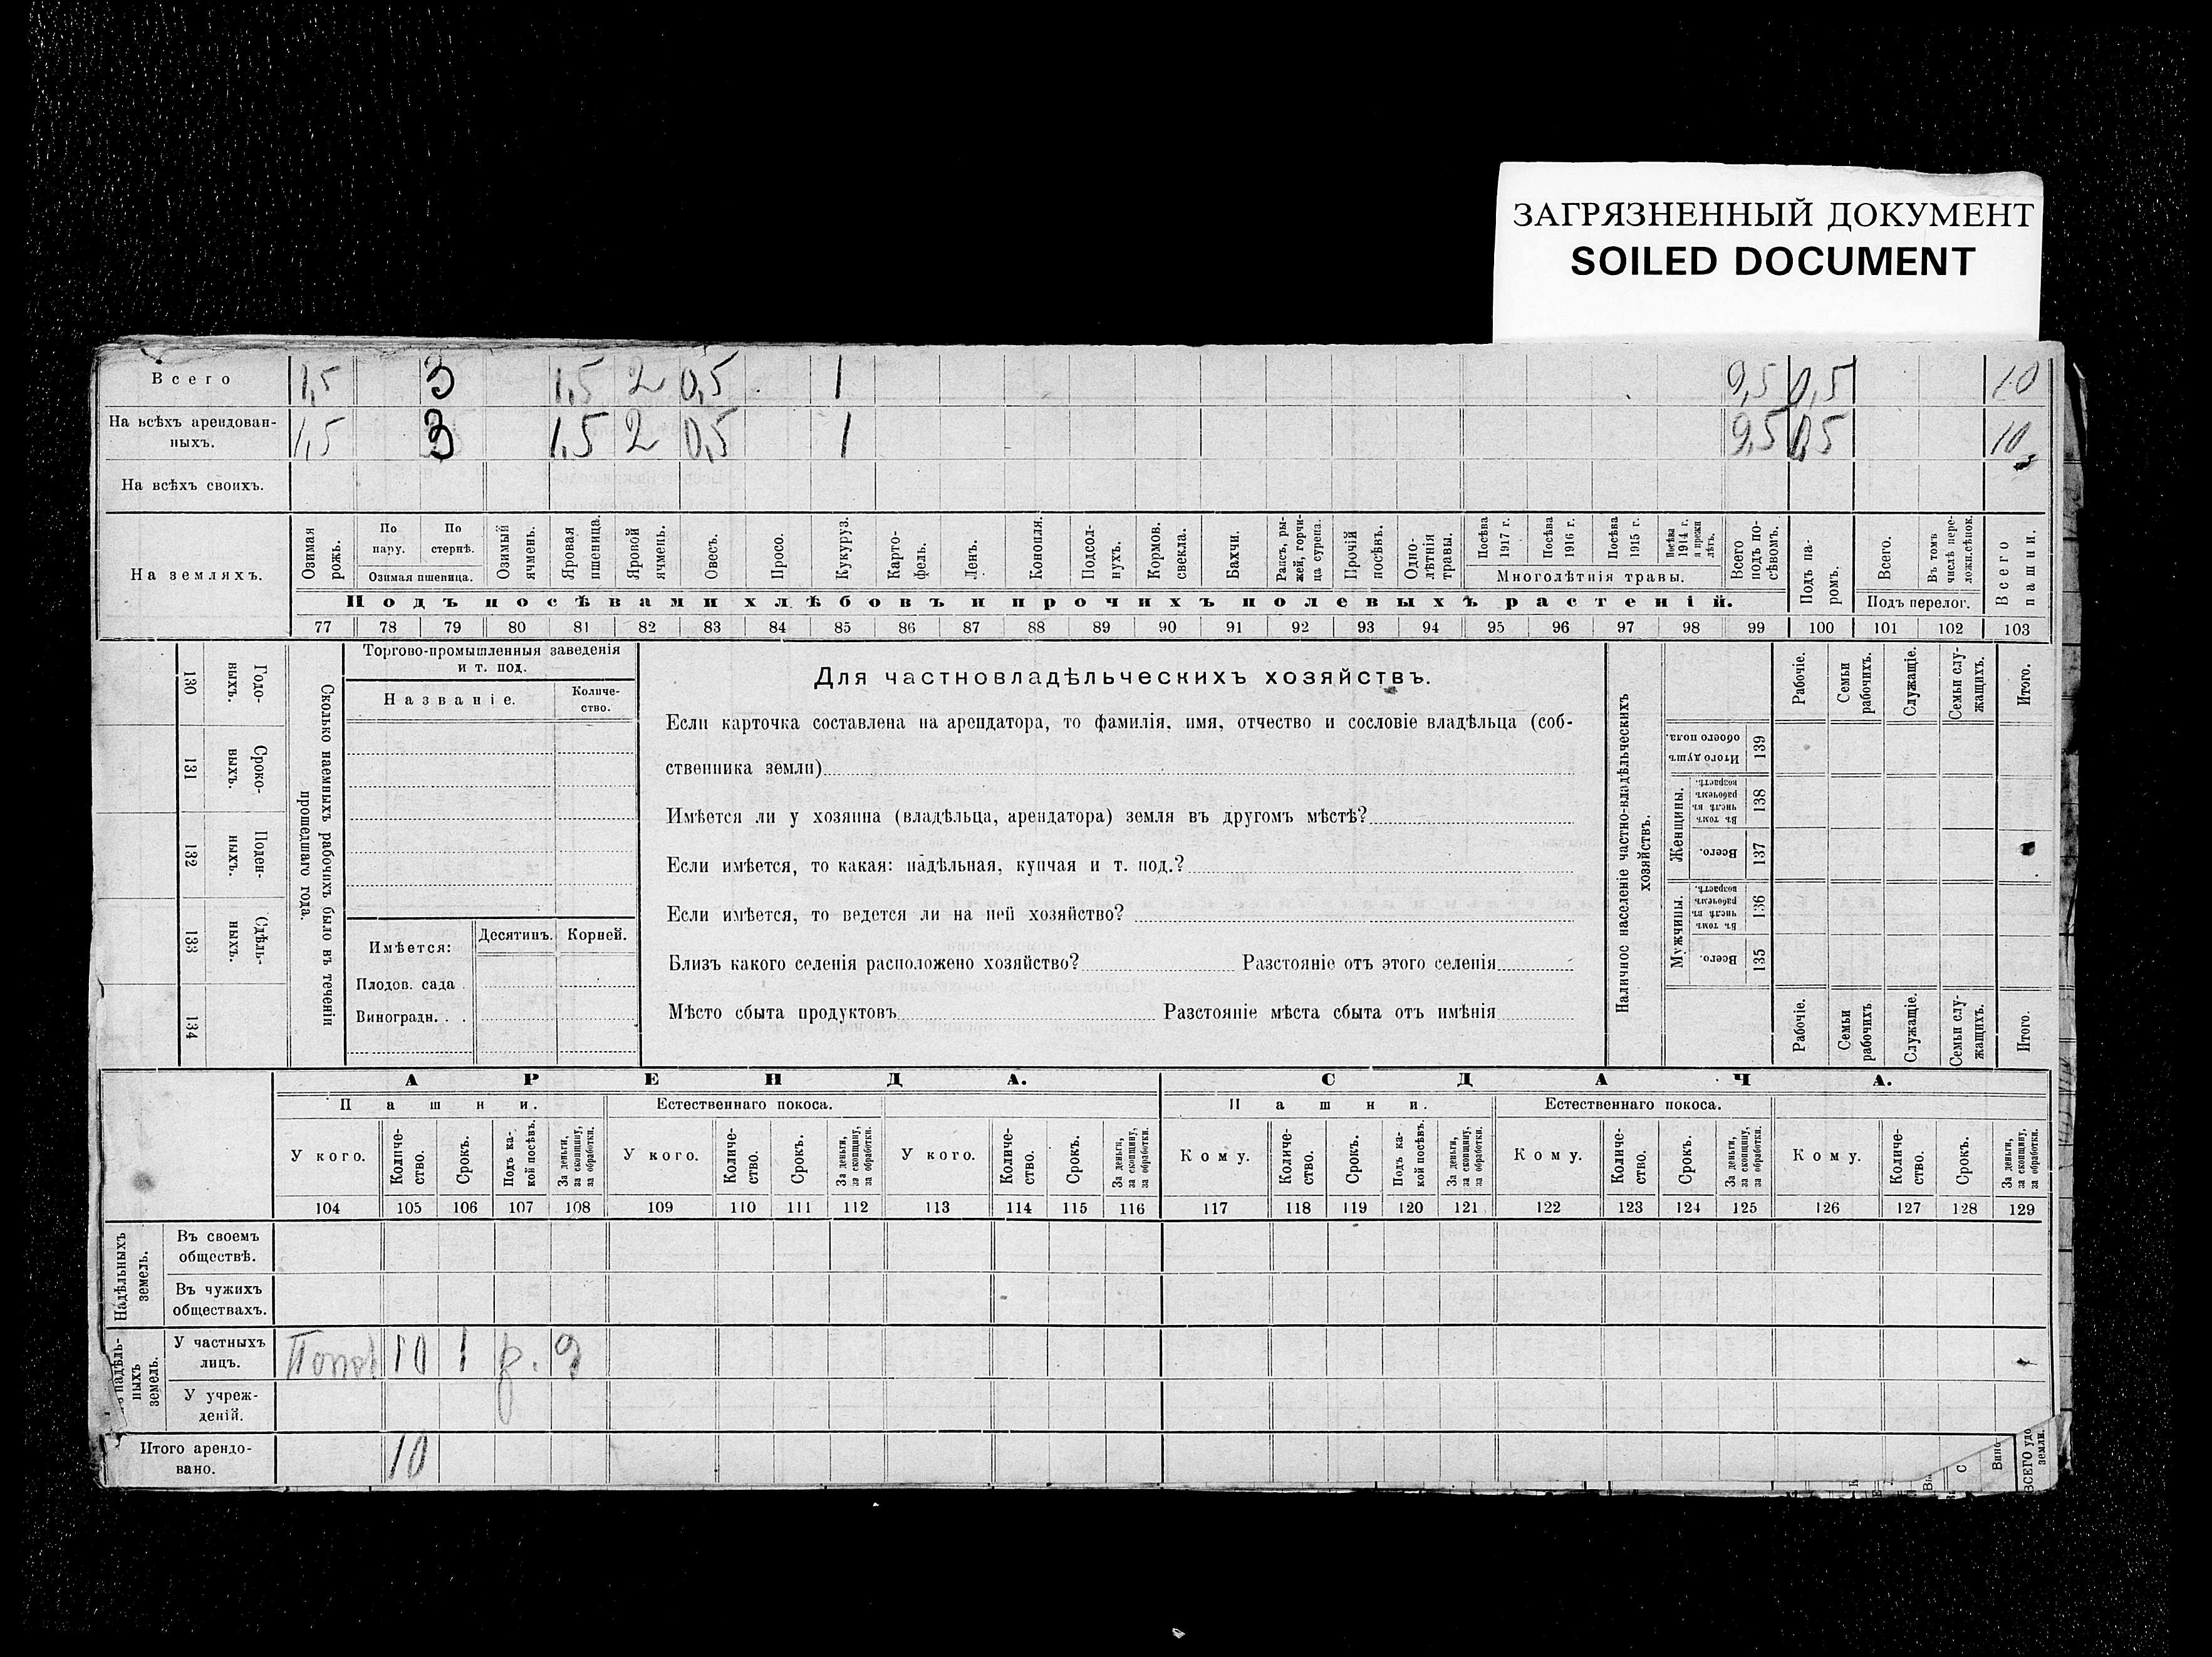 ЗАГРЯЗНЕННЫЙ ДОКУМЕНТ
SOILED DOCUMENT
Всего 1,5 3 1,5 2 0,5 1 9,5 0,5 10
На всѣхъ арендован-
ныхъ. 1,5 3 1,5 2 0,5 1 9,5 0,5 10
На всѣхъ своихъ.
На земляхъ.
Озимая рожь.
По пару.
По стернѣ.
Озимая пшеница.
Озимый ячмень.
Яровая пшеница.
Яровой ячмень.
Овесъ.
Просо.
Кукуруз.
Карто-
фель.
Ленъ.
Конопля.
Подсол-
нухъ.
Кормов. свекла.
Бахчи.
Рапсъ, ры-
жей, горчи-
ца сурепа.
Прочій посѣвъ.
Одно-
лѣтнія травы.
Посѣва 1917 г.
Посѣва 1916 г.
Посѣва 1915 г.
Посѣва 1914 г. и прежн лѣтъ.
Многолѣтнія травы.
Всего подъ по-
сѣвомъ.
Подъ посѣвами хлѣбовъ и прочихъ полевыхъ растеній.
Подъ па-
ромъ.
Всего.
Въ томъ числѣ пере-
ложн.сѣнок.
Подъ перелог.
Всего пашни.
77 78 79 80 81 82 83 84 85 86 87 88 89 90 91 92 93 94 95 96 97 98 99 100 101 102 103
130 Годо-
выхъ.
131 Сроко-
выхъ.
132 Поден-
ныхъ.
133 Сдѣль-
ныхъ.
134
Сколько наемныхъ рабочихъ было въ теченіи
прошедшаго года.
Торгово-промышленныя заведенія
и т. под.
Названіе.
Количе-
ство.
Имѣется:
Десятинъ.
Корней.
Плодов. сада .
Виноградн. . .
Для частновладѣльческихъ хозяйствъ.
Если карточка составлена на арендатора, то фамилія, имя, отчество и сословіе владѣльца (соб-
ственника земли)
Имѣется ли у хозяина (владѣльца, арендатора) земля въ другомъ мѣстѣ?
Если имѣется, то какая: надѣльная, купчая и т. под.?
Если имѣется, то ведется ли на ней хозяйство?
Близъ какого селенія расположено хозяйство? Разстояніе отъ этого селенія
Мѣсто сбыта продуктовъ Разстояніе мѣста сбыта отъ имѣнія
Наличное населеніе частно-владѣльческихъ
хозяйствъ.
Мужчины.
Женщины.
Итого душъ обоего пола.
139
Въ томъ числѣ въ рабочемъ возрастѣ.
138
Всего.
137
Въ томъ числѣ въ рабочемъ возрастѣ.
136
Всего.
135
Рабочіе.
Семьи рабочихъ.
Служащіе.
Семьи слу-
жащихъ.
Итого.
Рабочіе.
Семьи рабочихъ
Служащіе.
Семьи слу-
жащихъ.
Итого.
АРЕНДА.
СДАЧА.
Пашни.
Естественнаго покоса.
Пашни.
Естественнаго покоса.
У кого.
Количе-
ство.
Срокъ.
Подъ ка-
кой посѣвъ.
За деньги, за скопщину, за обработки.
У кого.
Количе-
ство.
Срокъ.
За деньги, за скопщину, за обработки.
У кого.
Количе-
ство.
Срокъ.
За деньги, за скопщину, за обработки.
Кому.
Количе-
ство.
Срокъ.
Подъ ка-
кой посѣвъ.
За деньги, за скопщину, за обработки.
Кому.
Количе-
ство.
Срокъ.
За деньги, за скопщину, за обработки.
Кому.
Количе-
ство.
Срокъ.
За деньги, за скопщину, за обработки.
104 105 106 107 108 109 110 111 112 113 114 115 116 117 118 119 120 121 122 123 124 125 126 127 128 129
Надѣльныхъ земель.
Въ своемъ
обществѣ.
Въ чужихъ
обществахъ.
надѣль-
ныхъ земель.
У частныхъ
лицъ. 10 1 р.
У учреж-
деній.
Итого арендо-
вано. 10
ВСЕГО удо
земли.